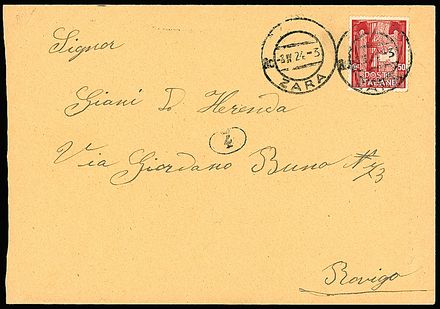 Signor
-8 IV 24-5
ZARA
50
POSTE
ITALIANE
Giani D. Herenda
4
Via Giordano Bruno N 73
Rovigo